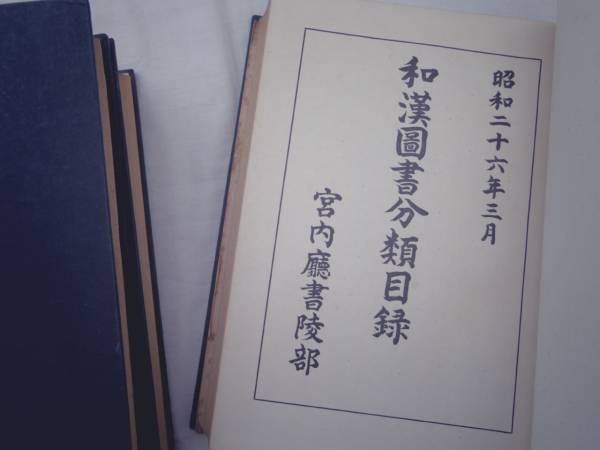 昭和二十六年三月
和漢圖書分類目録
宮内廳書陵部